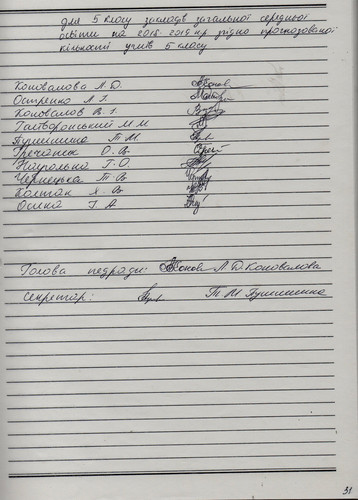 для 5 класу закладів загальної середньої
освіти на 2018-2019 н.р. згідно прогнозованої
кількості учнів 5 класу
Коновалова Л.Д.
Остренко Л.І.
Коновалов В.І.
Гайворонський М.М.
Пушишина Т.М.
Гречаник О.В.
Чернецька Т.В.
Колпак Я.В.
Осика Г.А.
Голова педради: Л.Д. Коновалова
Секретар: Т.М.
31